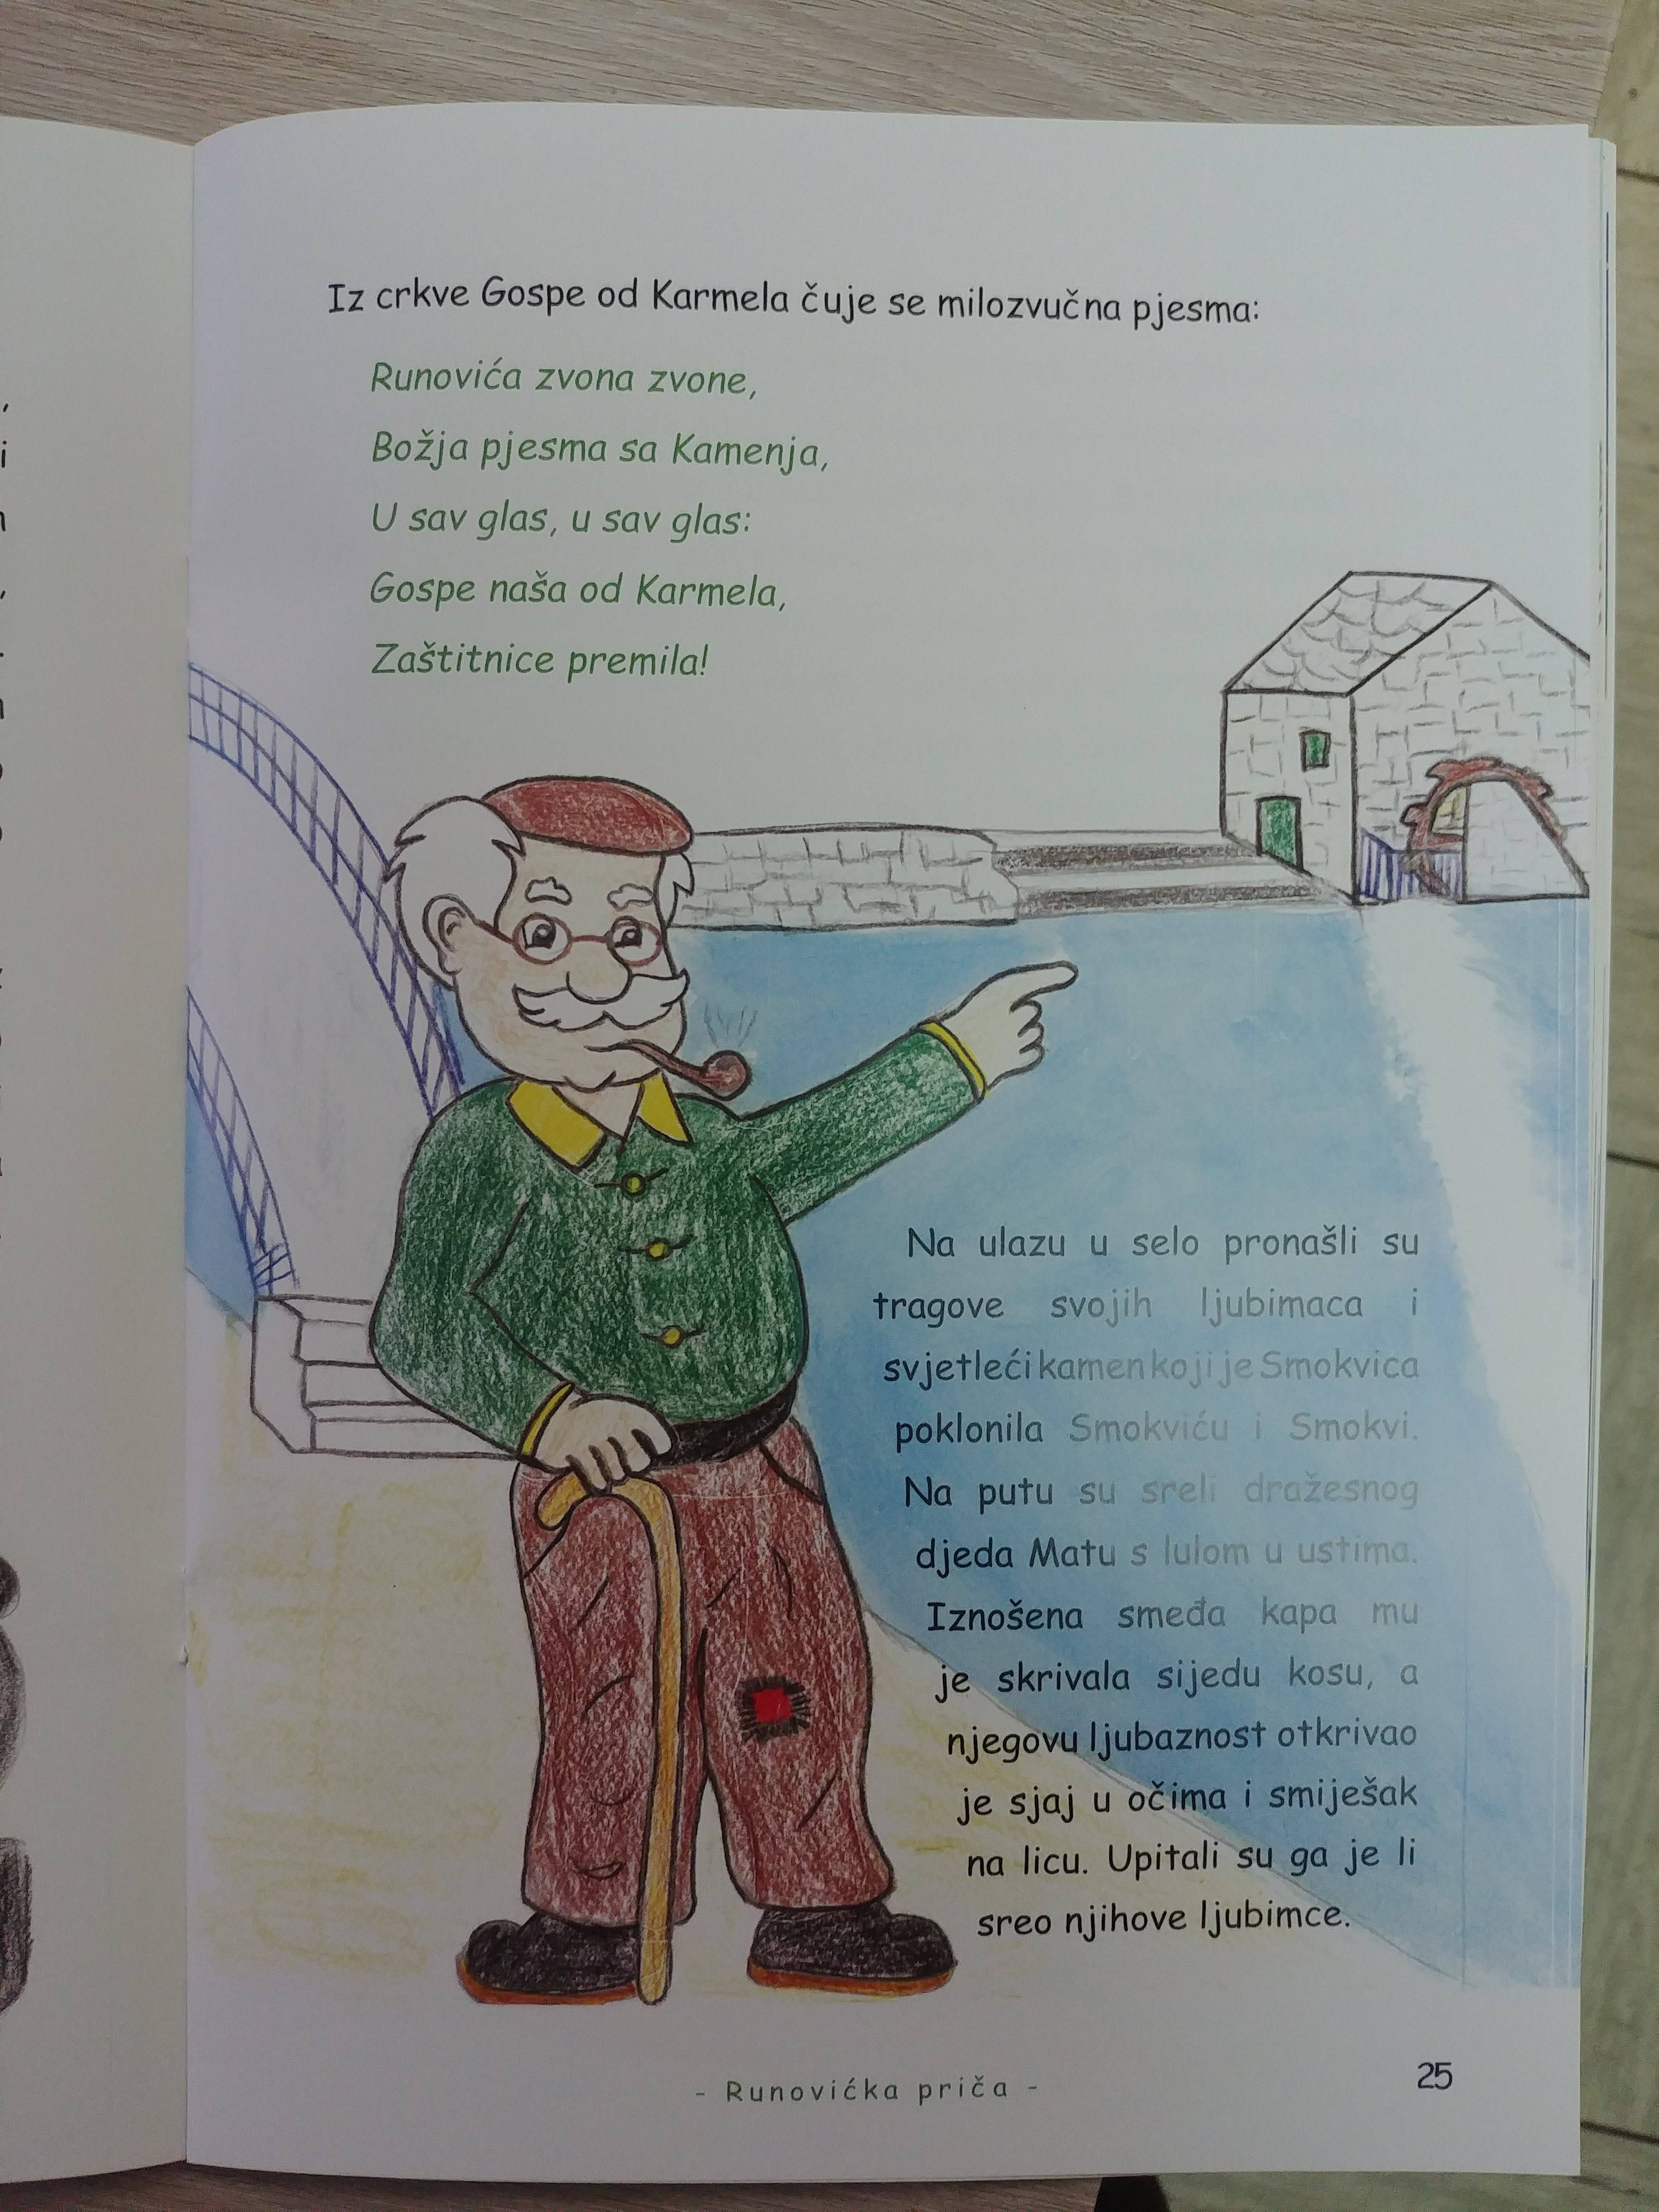 Iz crkve Gospe od Karmela čuje se milozvučna pjesma:
Runovića zvona zvone,
Božja pjesma sa Kamenja,
U sav glas, u sav glas:
Gospe naša od Karmela,
Zaštitnice premila!
Na ulazu u selo pronašli su
tragove svojih ljubimaca i
svjetleći kamen koji je Smokvica
poklonila Smokviću i Smokvi.
Na putu su sreli dražesnog
djeda Matu s lulom u ustima.
Iznošena smeđa kapa mu
je skrivala sijedu kosu, a
njegovu ljubaznost otkrivao
je sjaj u očima i smiješak
na licu. Upitali su ga je li
sreo njihove ljubimce.
- Runovićka priča -
25